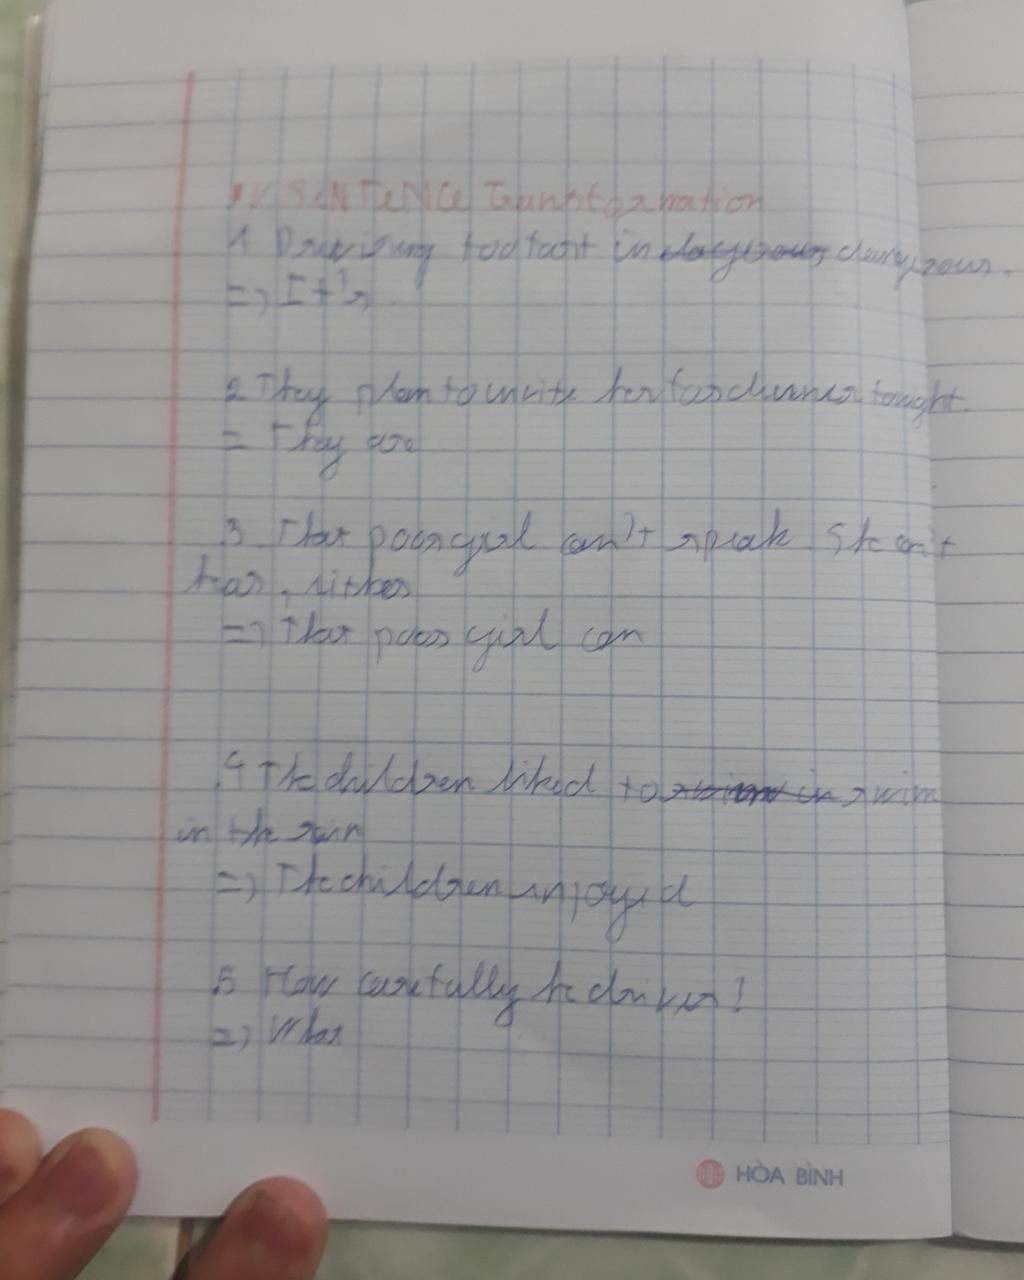 IV SENTENCE Transformation
1 Driving too fast is dangerous.
=> It's
2 They plan to invite her for dinner tonight.
= They are
3. That poor girl can't speak. She can't
hear, either
=> That poor girl can
4 The children liked to swim
in the rain
=> The children enjoyed
5 How carefully he drives!
=> What
HÒA BÌNH